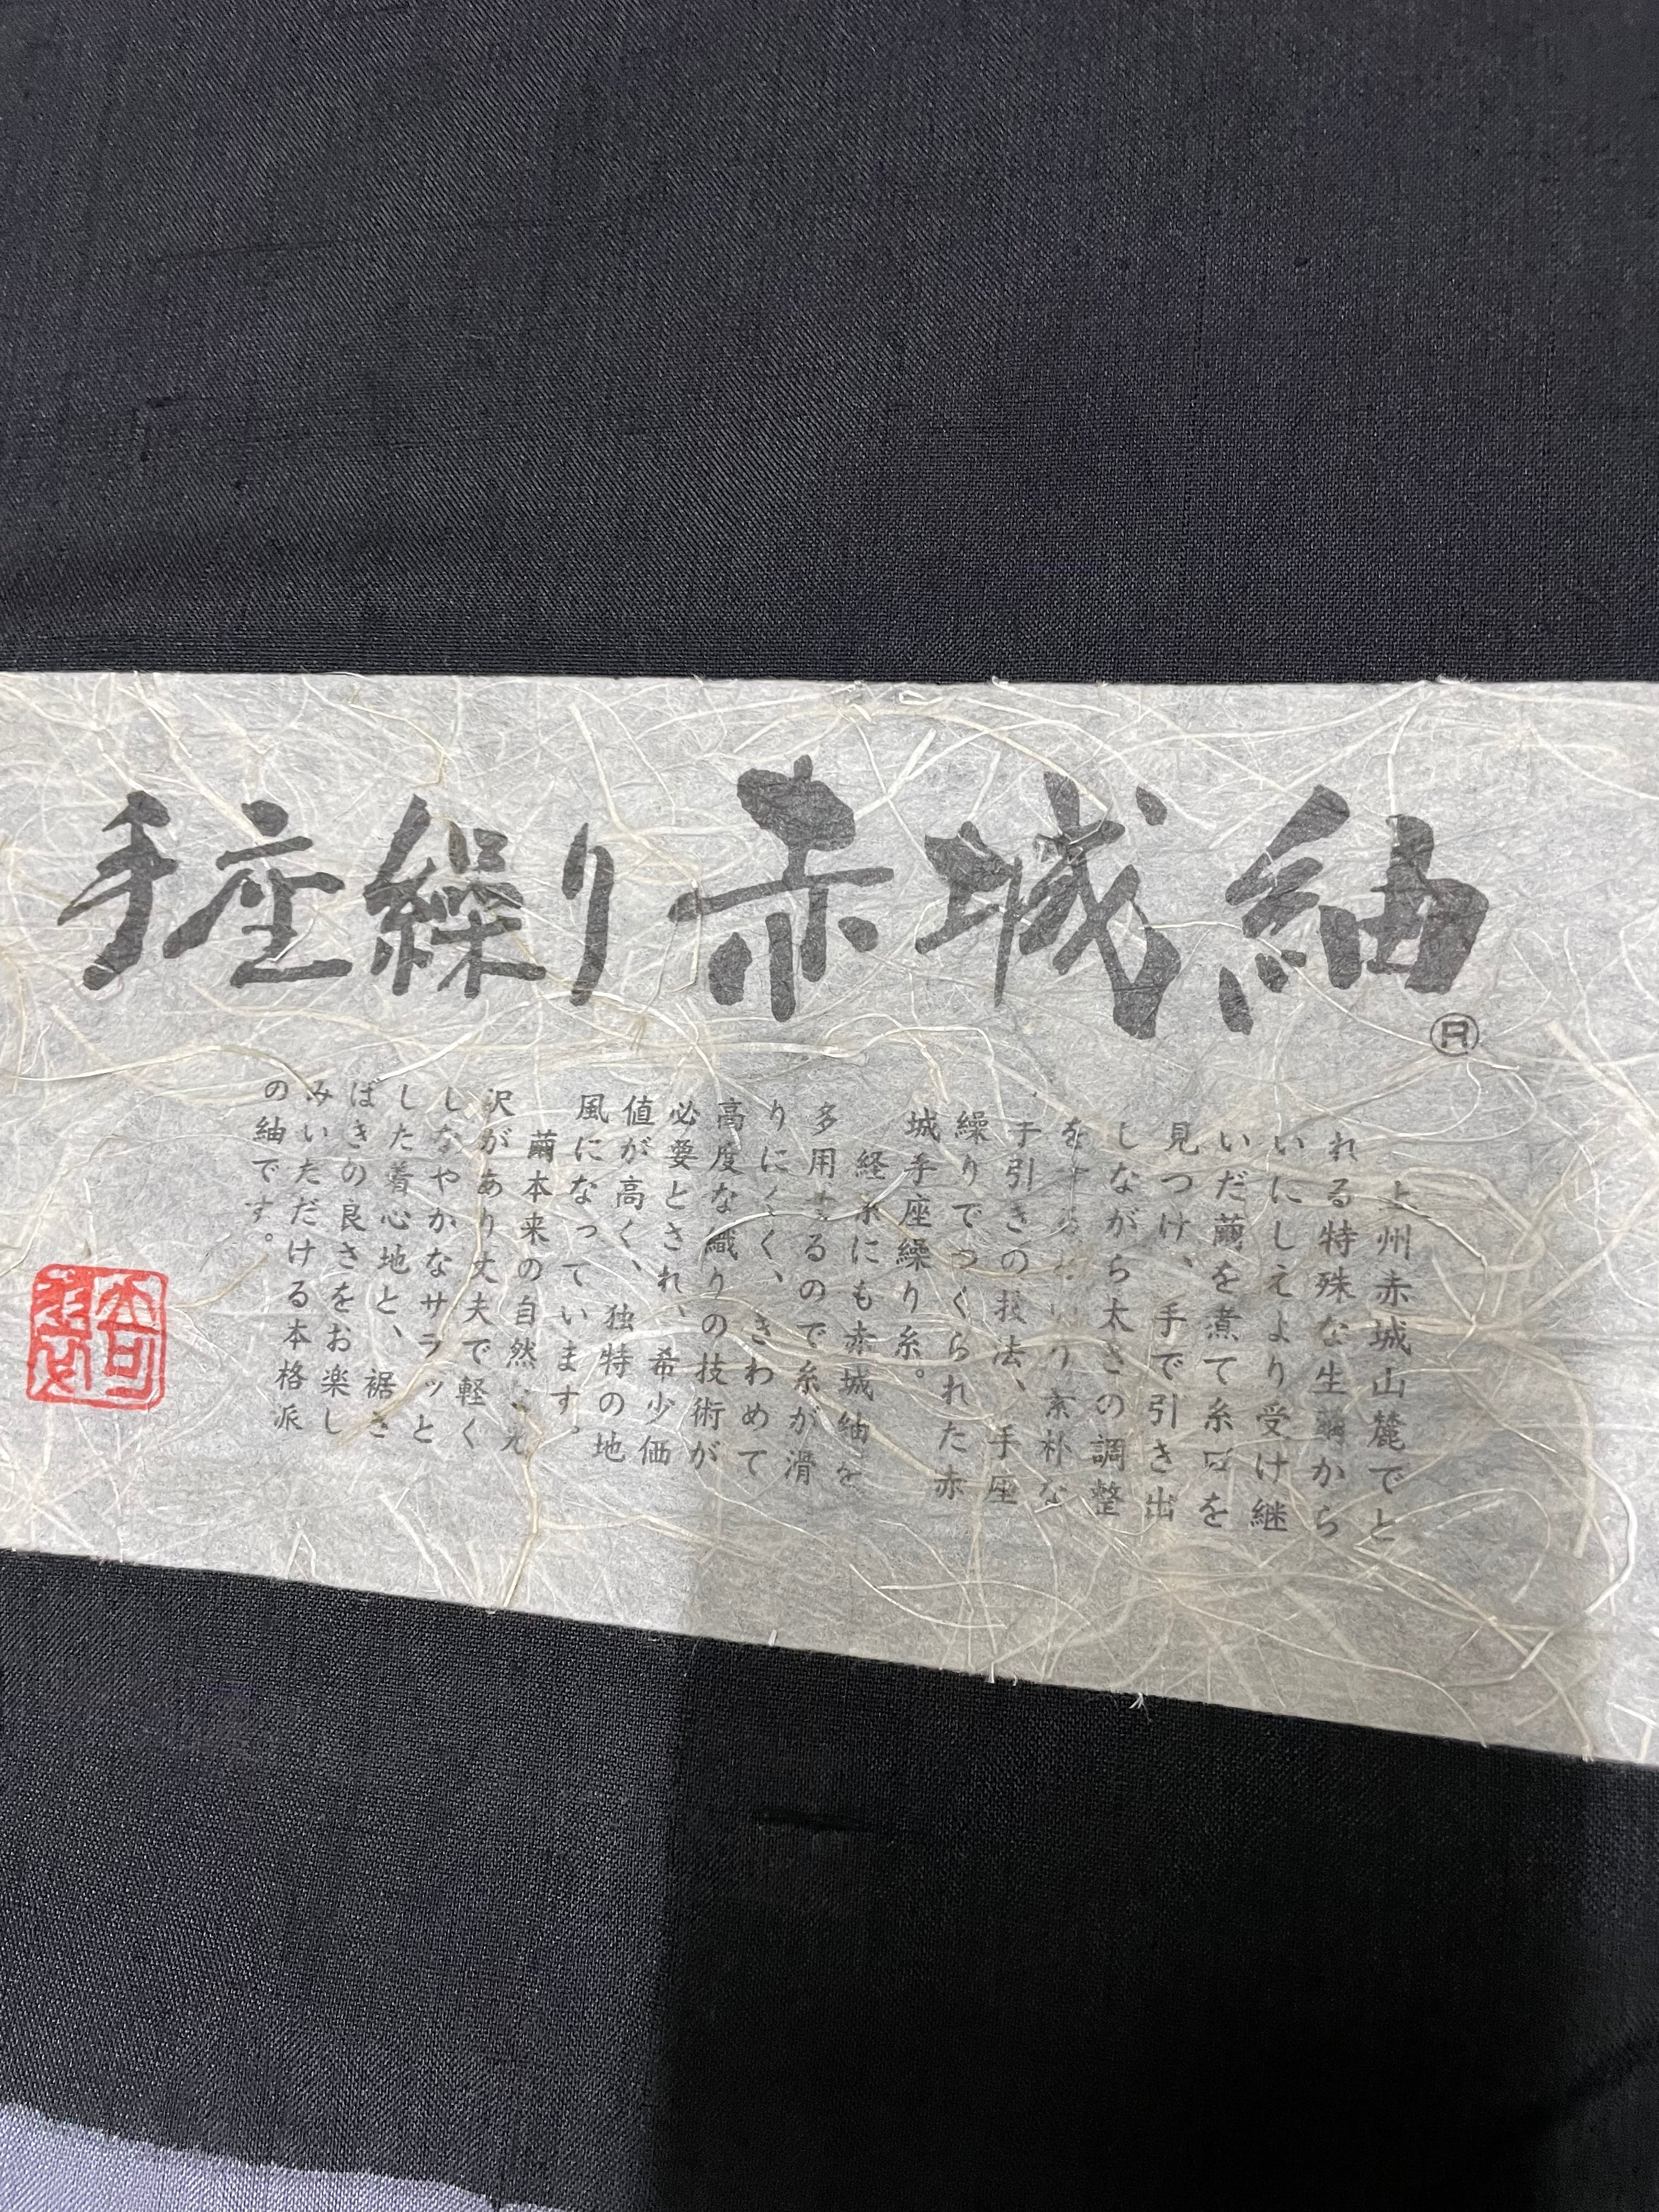 手座繰り赤城紬
Ⓡ
上州赤城山麓でと
れる特殊な生繭から
いにしえより受け継
いだ繭を煮て糸口を
見つけ、手で引き出
しながら太さの調整
を素朴な
手引きの技法、手座
繰りでつくられた赤
城手座繰り糸。
経糸にも赤城紬を
多用するので糸が滑
りにくく、きわめて
高度な織りの技術が
必要とされ、希少価
値が高く、独特の地
風になっています。
繭本来の自然な光
沢があり丈夫で軽く
しなやかなサラッと
した着心地と、裾さ
ばきの良さをお楽し
みいただける本格派
の紬です。